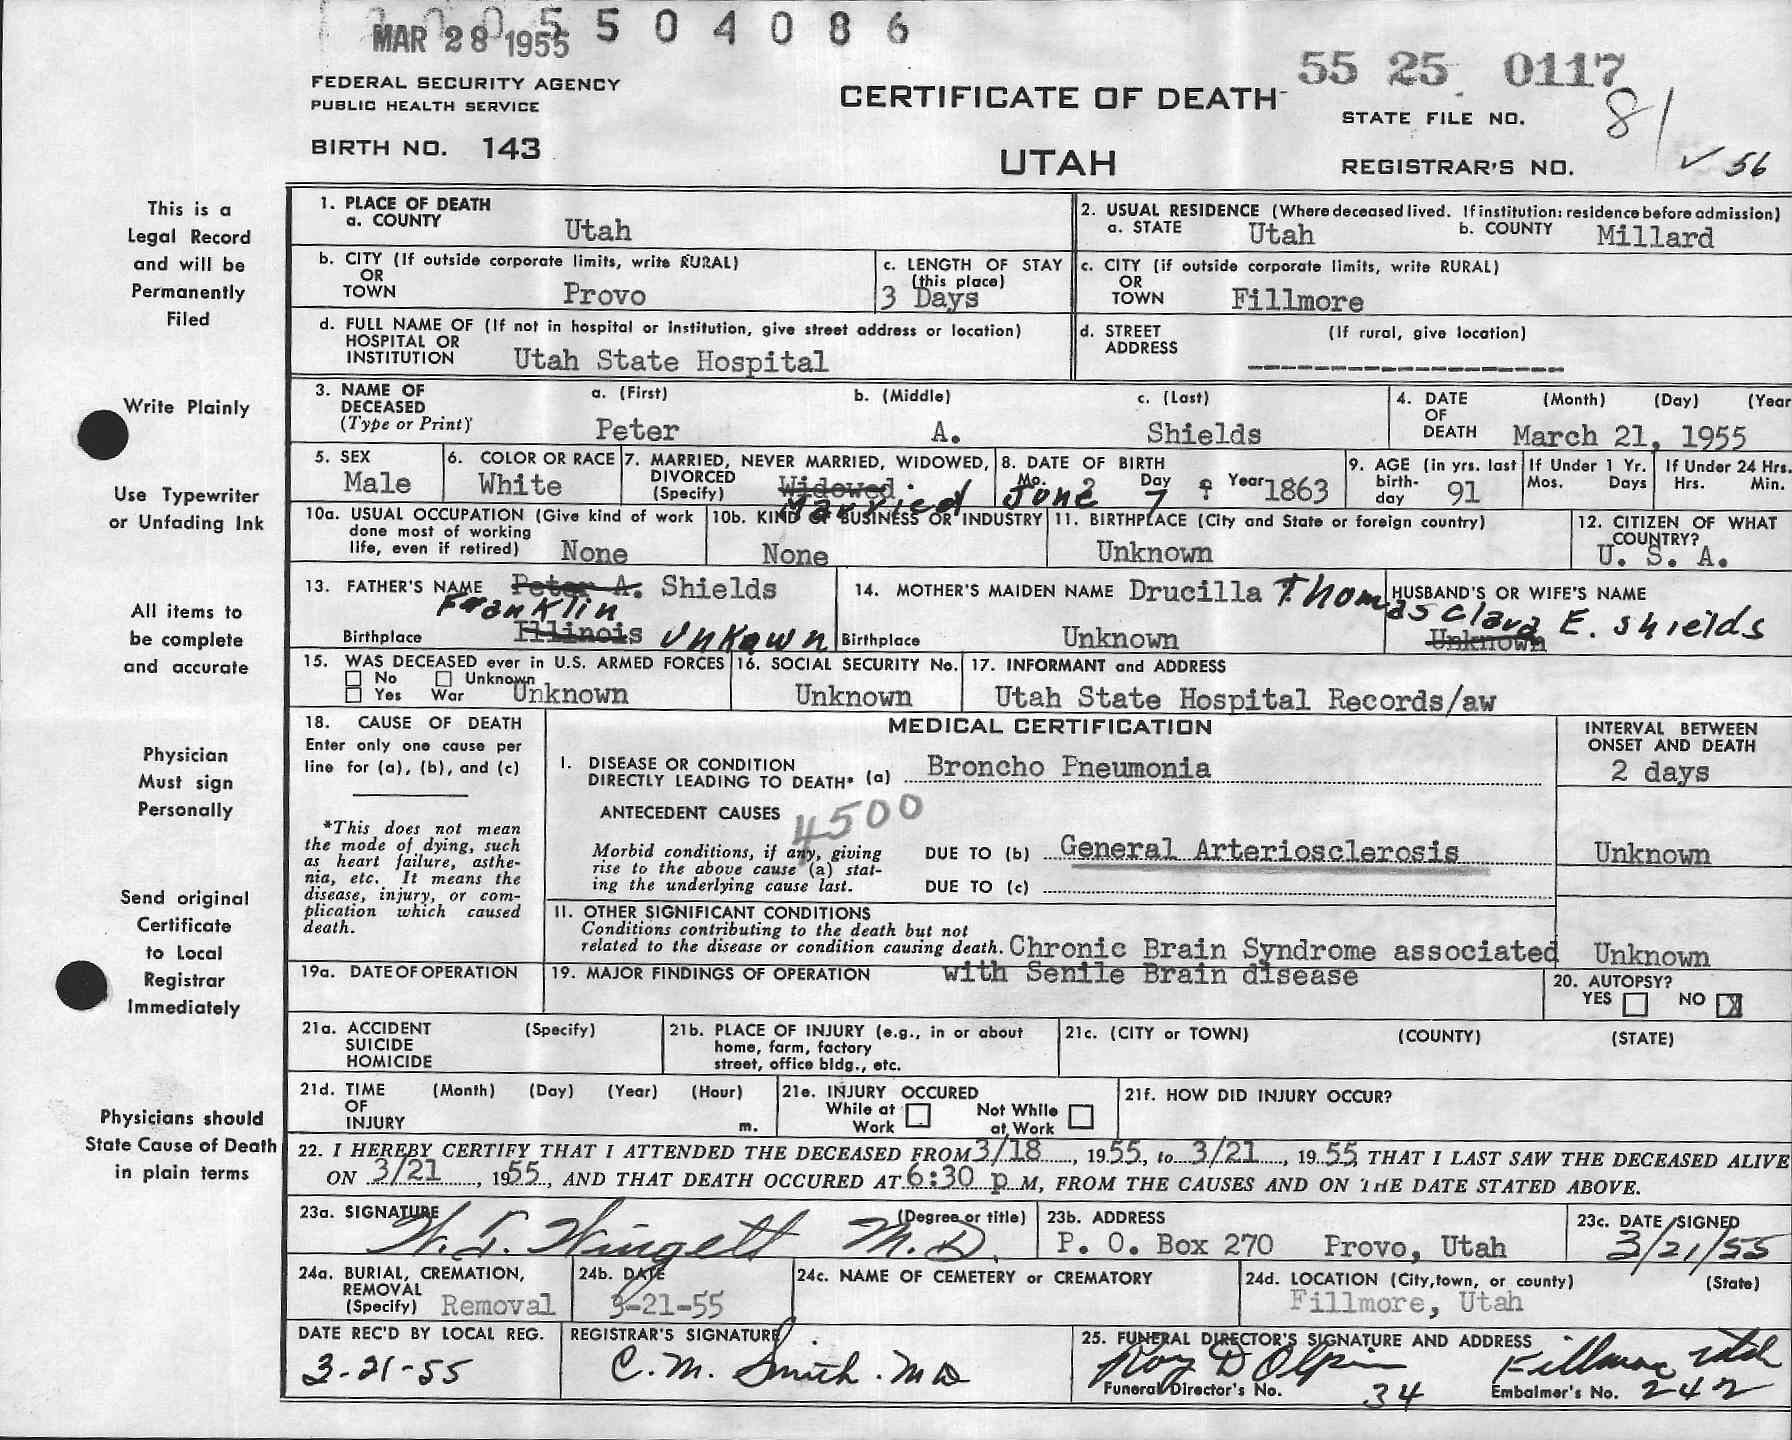 MAR 28 1955 5504086
55 25 0117
FEDERAL SECURITY AGENCY
PUBLIC HEALTH SERVICE
CERTIFICATE OF DEATH
STATE FILE NO. 81
BIRTH NO. 143
UTAH
REGISTRAR'S NO. ✓ 56
This is a
Legal Record
and will be
Permanently
Filed
Write Plainly
Use Typewriter
or Unfading Ink
All items to
be complete
and accurate
Physician
Must sign
Personally
Send original
Certificate
to Local
Registrar
Immediately
Physicians should
State Cause of Death
in plain terms
1. PLACE OF DEATH
a. COUNTY Utah
2. USUAL RESIDENCE (Where deceased lived. If institution: residence before admission)
a. STATE Utah b. COUNTY Millard
b. CITY (If outside corporate limits, write RURAL)
OR
TOWN Provo
c. LENGTH OF STAY
(this place)
3 Days
c. CITY (if outside corporate limits, write RURAL)
OR
TOWN Fillmore
d. FULL NAME OF (If not in hospital or institution, give street address or location)
HOSPITAL OR
INSTITUTION Utah State Hospital
d. STREET (If rural, give location)
ADDRESS
3. NAME OF a. (First) b. (Middle) c. (Last)
DECEASED
(Type or Print) Peter A. Shields
4. DATE (Month) (Day) (Year
OF
DEATH March 21, 1955
5. SEX
Male
6. COLOR OR RACE
White
7. MARRIED, NEVER MARRIED, WIDOWED,
DIVORCED
(Specify) Widowed
Married
8. DATE OF BIRTH
Mo. 2 Day ? Year 1863
June 7
9. AGE (in yrs. last
birth-
day 91
If Under 1 Yr.
Mos. Days
If Under 24 Hrs.
Hrs. Min.
10a. USUAL OCCUPATION (Give kind of work
done most of working
life, even if retired) None
10b. KIND OF BUSINESS OR INDUSTRY
None
11. BIRTHPLACE (City and State or foreign country)
Unknown
12. CITIZEN OF WHAT
COUNTRY?
U. S. A.
13. FATHER'S NAME Peter A. Shields
Franklin
Birthplace Illinois Unkown
14. MOTHER'S MAIDEN NAME Drucilla Thomas
Birthplace Unknown
HUSBAND'S OR WIFE'S NAME
Clara E. Shields
Unknown
15. WAS DECEASED ever in U.S. ARMED FORCES
No Unknown
Yes War Unknown
16. SOCIAL SECURITY No.
Unknown
17. INFORMANT and ADDRESS
Utah State Hospital Records/aw
18. CAUSE OF DEATH
Enter only one cause per
line for (a), (b), and (c)
*This does not mean
the mode of dying, such
as heart failure, asthe-
nia, etc. It means the
disease, injury, or com-
plication which caused
death.
MEDICAL CERTIFICATION
INTERVAL BETWEEN
ONSET AND DEATH
I. DISEASE OR CONDITION
DIRECTLY LEADING TO DEATH* (a) Broncho Pneumonia 2 days
ANTECEDENT CAUSES 4500
Morbid conditions, if any, giving
rise to the above cause (a) stat-
ing the underlying cause last.
DUE TO (b) General Arteriosclerosis Unknown
DUE TO (c)
II. OTHER SIGNIFICANT CONDITIONS
Conditions contributing to the death but not
related to the disease or condition causing death. Chronic Brain Syndrome associated Unknown
with Senile Brain disease
19a. DATE OF OPERATION
19. MAJOR FINDINGS OF OPERATION
20. AUTOPSY?
YES NO X
21a. ACCIDENT (Specify)
SUICIDE
HOMICIDE
21b. PLACE OF INJURY (e.g., in or about
home, farm, factory
street, office bldg., etc.
21c. (CITY or TOWN) (COUNTY) (STATE)
21d. TIME (Month) (Day) (Year) (Hour)
OF
INJURY m.
21e. INJURY OCCURED
While at Not While
Work at Work
21f. HOW DID INJURY OCCUR?
22. I HEREBY CERTIFY THAT I ATTENDED THE DECEASED FROM 3/18, 1955, to 3/21, 1955 THAT I LAST SAW THE DECEASED ALIVE
ON 3/21, 1955, AND THAT DEATH OCCURED AT 6:30 p M, FROM THE CAUSES AND ON THE DATE STATED ABOVE.
23a. SIGNATURE (Degree or title)
M.D.
23b. ADDRESS
P. O. Box 270 Provo, Utah
23c. DATE SIGNED
3/21/55
24a. BURIAL, CREMATION,
REMOVAL
(Specify) Removal
24b. DATE
3-21-55
24c. NAME OF CEMETERY or CREMATORY
24d. LOCATION (City, town, or county) (State)
Fillmore, Utah
DATE REC'D BY LOCAL REG.
3-21-55
REGISTRAR'S SIGNATURE
C. M. Smith. MD
25. FUNERAL DIRECTOR'S SIGNATURE AND ADDRESS
Roy D Olpin Fillmore Utah
Funeral Director's No. 34 Embalmer's No. 242